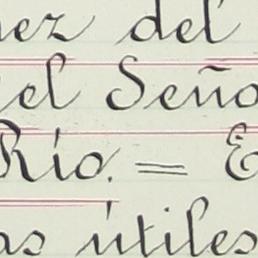 nez del
el Seño
Río. = E
as útiles